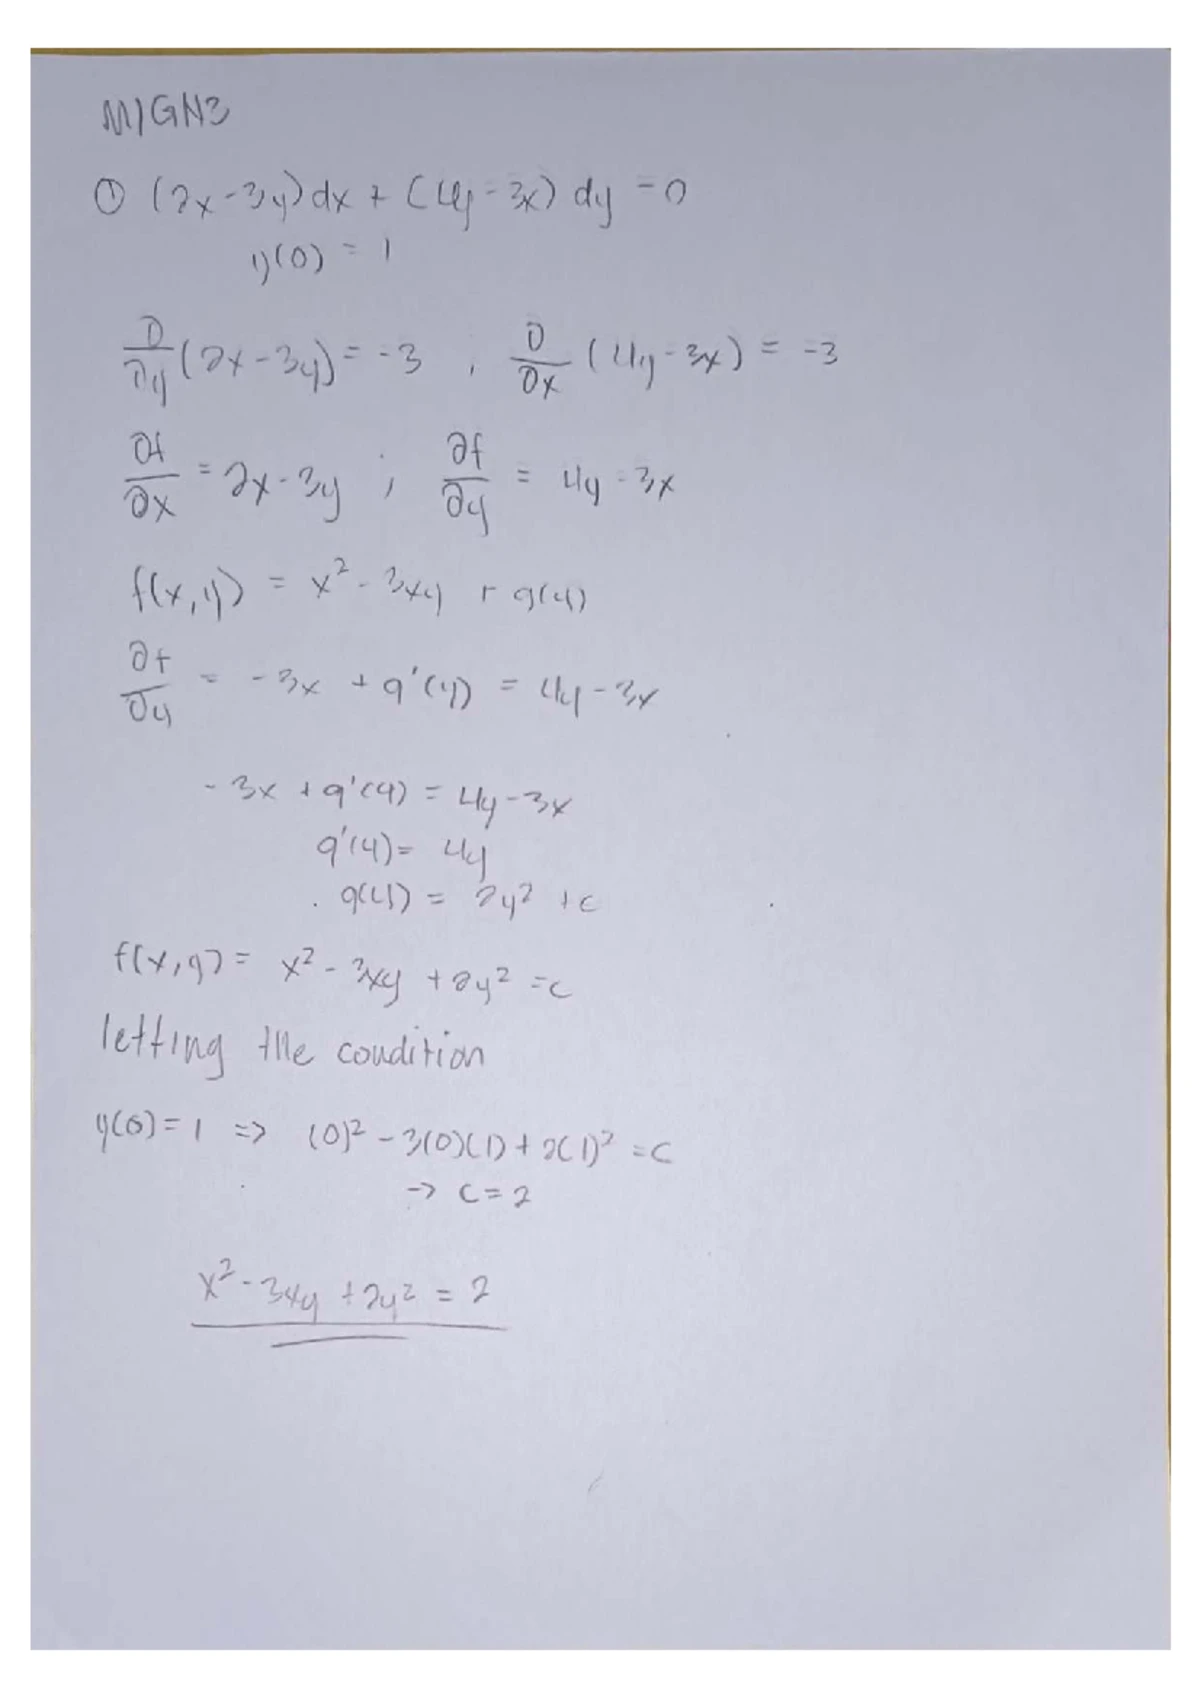 M1GN3
① (2x-3y)dx + (4y-3x) dy = 0
y(0) = 1
∂/∂y (2x-3y) = -3 , ∂/∂x (4y-3x) = -3
∂f/∂x = 2x-3y ; ∂f/∂y = 4y-3x
f(x,y) = x² - 3xy + g(y)
∂f/∂y = -3x + g'(y) = 4y-3x
-3x + g'(y) = 4y-3x
g'(y) = 4y
g(y) = 2y² + c
f(x,y) = x² - 3xy + 2y² = c
letting the condition
y(0) = 1 => (0)² - 3(0)(1) + 2(1)² = c
-> c = 2
x² - 3xy + 2y² = 2